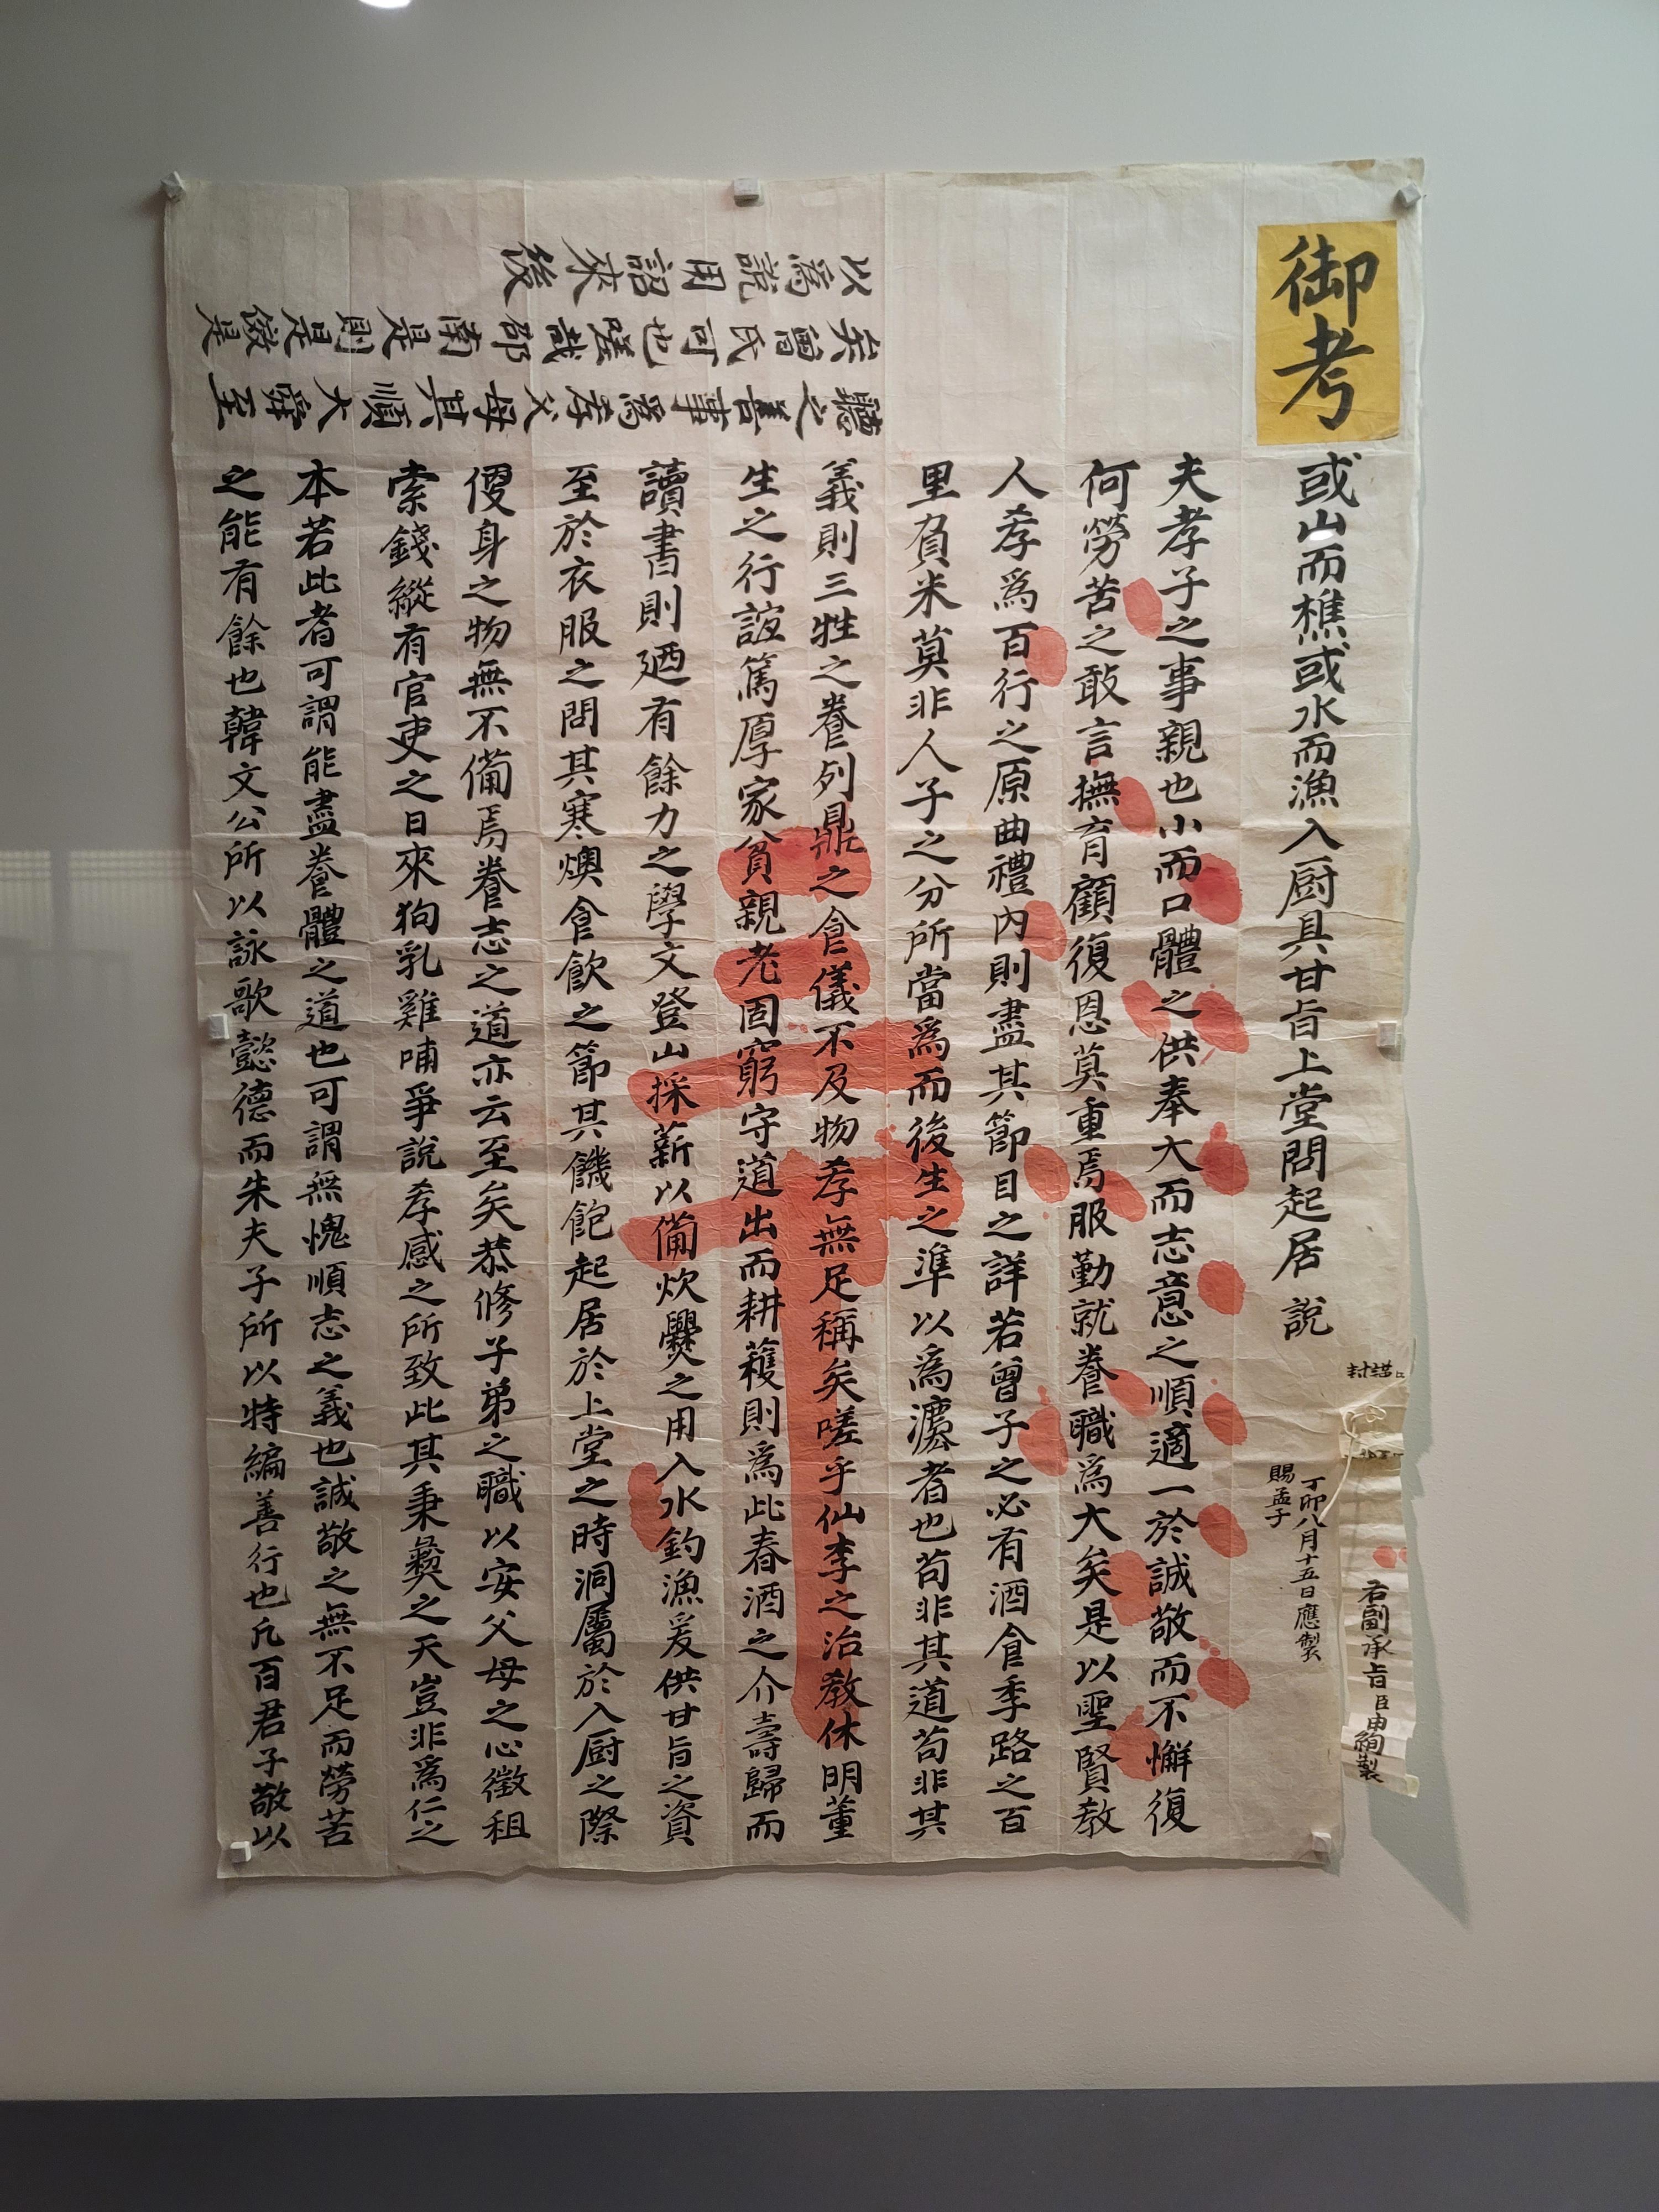 御考
或山而樵或水而漁入廚具甘旨上堂問起居 說
丁卯八月十五日應製
賜孟子
右副承旨臣申絢製
夫孝子之事親也小而口體之供奉大而志意之順適一於誠敬而不懈復
何勞苦之敢言撫育顧復恩莫重焉服勤就養職爲大矣是以聖賢教
人孝爲百行之原曲禮內則盡其節目之詳若曾子之必有酒食季路之百
里負米莫非人子之分所當爲而後生之準以爲灋者也苟非其道苟非其
義則三牲之養列鼎之食儀不及物孝無足稱矣嗟乎仙李之治教休明董
生之行誼篤厚家貧親老固窮守道出而耕穫則爲此春酒之介壽歸而
讀書則廼有餘力之學文登山採薪以備炊爨之用入水釣漁爰供甘旨之資
至於衣服之問其寒燠食飲之節其饑飽起居於上堂之時洞屬於入廚之際
便身之物無不備焉養志之道亦云至矣恭修子弟之職以安父母之心徵租
索錢縱有官吏之日來狗乳雞哺爭說孝感之所致此其秉彝之天豈非爲仁之
本若此者可謂能盡養體之道也可謂無愧順志之義也誠敬之無不足而勞苦
之能有餘也韓文公所以詠歌懿德而朱夫子所以特編善行也凡百君子敬以
聽之善事爲孝父母其順大舜至
矣曾氏可也嗟哉邵南是則是傚是
以爲說用詔來後